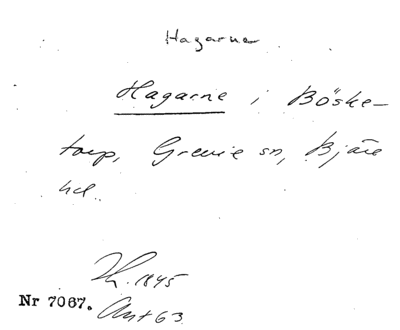 Hagarne
Hagarne i Böske-
torp, Grevie sn, Bjäre
hd.
1845
Nr 7067. Ant 63